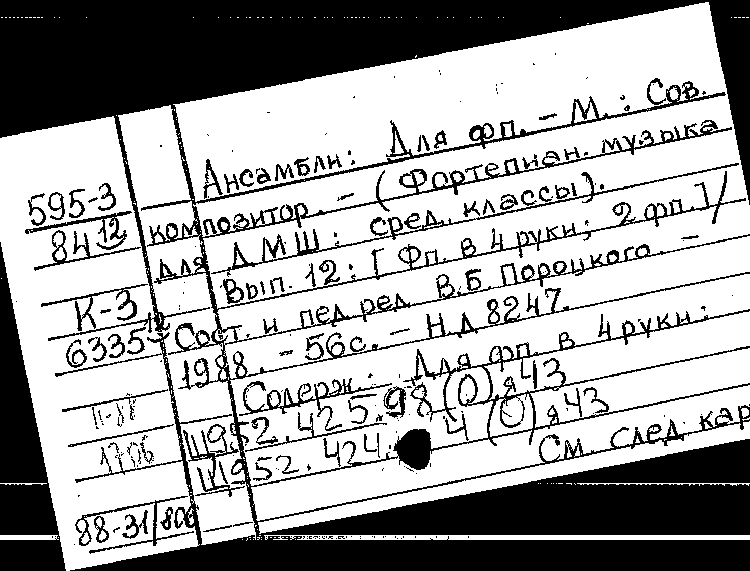 Ансамбли: Для фп. – М.: Сов.
композитор. – (Фортепиан. музыка
для ДМШ: сред. классы).
Вып. 12: [Фп. в 4 руки; 2 фп.] /
Сост. и пед. ред. В.Б. Пороцкого. –
1988. – 56 с. – Н.д. 8247.
Содерж.: Для фп. в 4 руки:
Щ952.425.98(0)я43
Щ952.424. 4(0)я43
См. след. кар
595-3
84 12
К-3
6335 12
П-88
1706
88-31/806